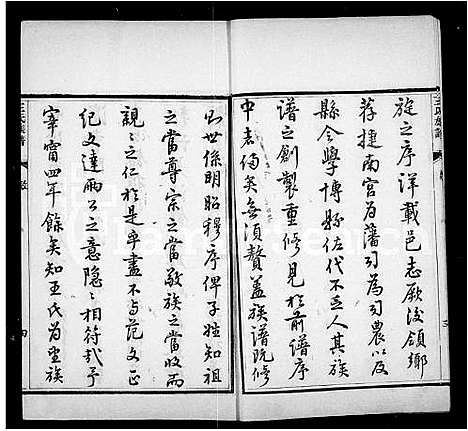 旋之序詳載邑志厥後領鄉
荐捷南宮為藩司為司農以及
縣令學博縣佐代不乏人其族
譜之創製重修見於前譜序
中者備矣無須贅蓋族譜既修
則世係明昭穆序俾子姓知祖
之當尊宗之當敬族之當收而
親親之仁於是乎盡不與范文正
紀文達兩公之意隱隱相符哉予
宰甯四年餘矣知王氏為望族
王氏族譜
三
四